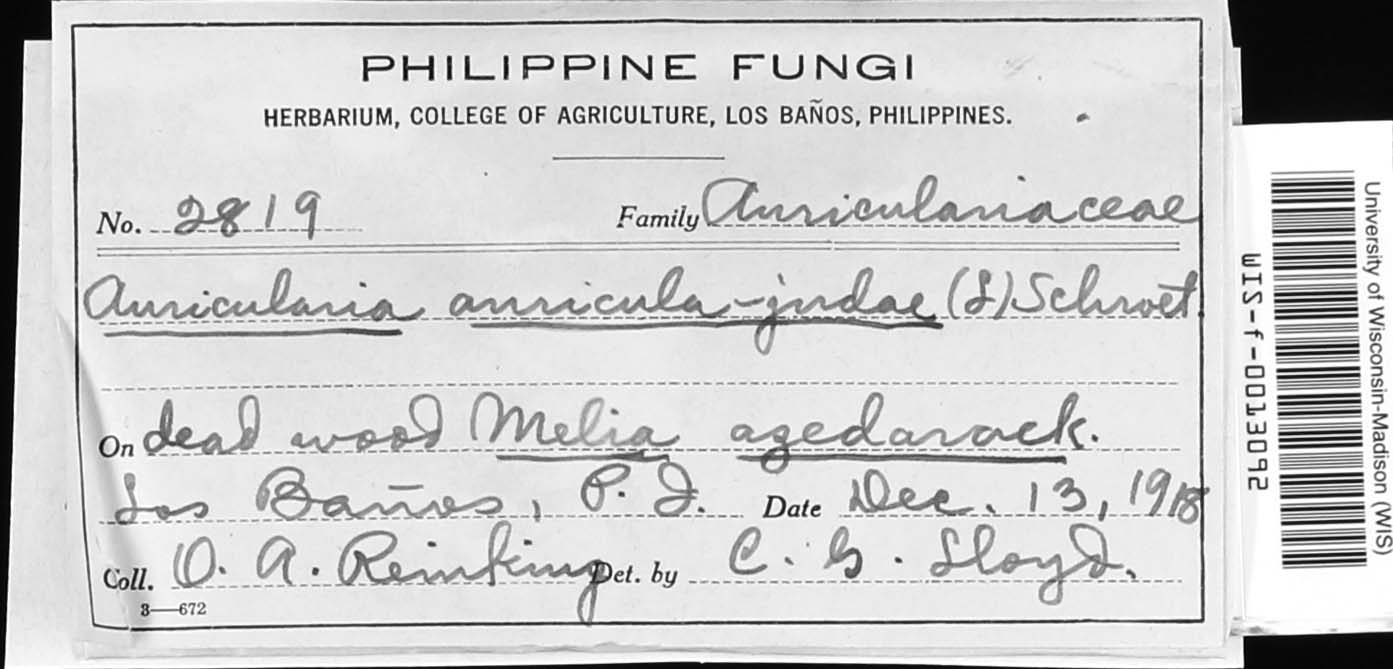 PHILIPPINE FUNGI
HERBARIUM, COLLEGE OF AGRICULTURE, LOS BAÑOS, PHILIPPINES.
No. 2819 Family Auriculariaceae
Auricularia auricula-judae (L) Schroet.
On dead wood Melia azedarack.
Los Baños, P. I. Date Dec. 13, 1918
Coll. O. A. Reinking Det. by C. G. Lloyd.
3—672
WIS-f-0013092
University of Wisconsin-Madison (WIS)